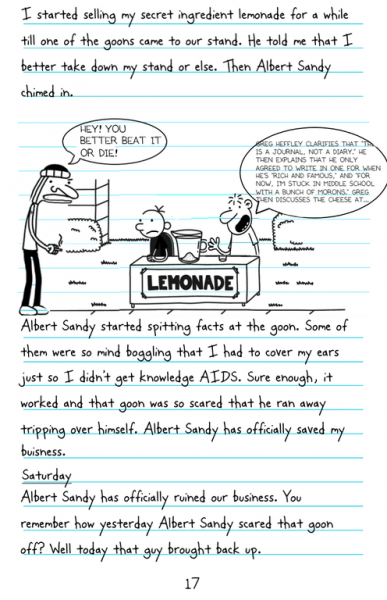 I started selling my secret ingredient lemonade for a while
till one of the goons came to our stand. He told me that I
better take down my stand or else. Then Albert Sandy
chimed in.
HEY! YOU
BETTER BEAT IT
OR DIE!
GREG HEFFLEY CLARIFIES THAT "THIS
IS A JOURNAL, NOT A DIARY." HE
THEN EXPLAINS THAT HE ONLY
AGREED TO WRITE IN ONE FOR WHEN
HE'S "RICH AND FAMOUS," AND "FOR
NOW, I'M STUCK IN MIDDLE SCHOOL
WITH A BUNCH OF MORONS." GREG
THEN DISCUSSES THE CHEESE AT...
LEMONADE
Albert Sandy started spitting facts at the goon. Some of
them were so mind boggling that I had to cover my ears
just so I didn't get knowledge AIDS. Sure enough, it
worked and that goon was so scared that he ran away
tripping over himself. Albert Sandy has officially saved my
buisness.
Saturday
Albert Sandy has officially ruined our business. You
remember how yesterday Albert Sandy scared that goon
off? Well today that guy brought back up.
17